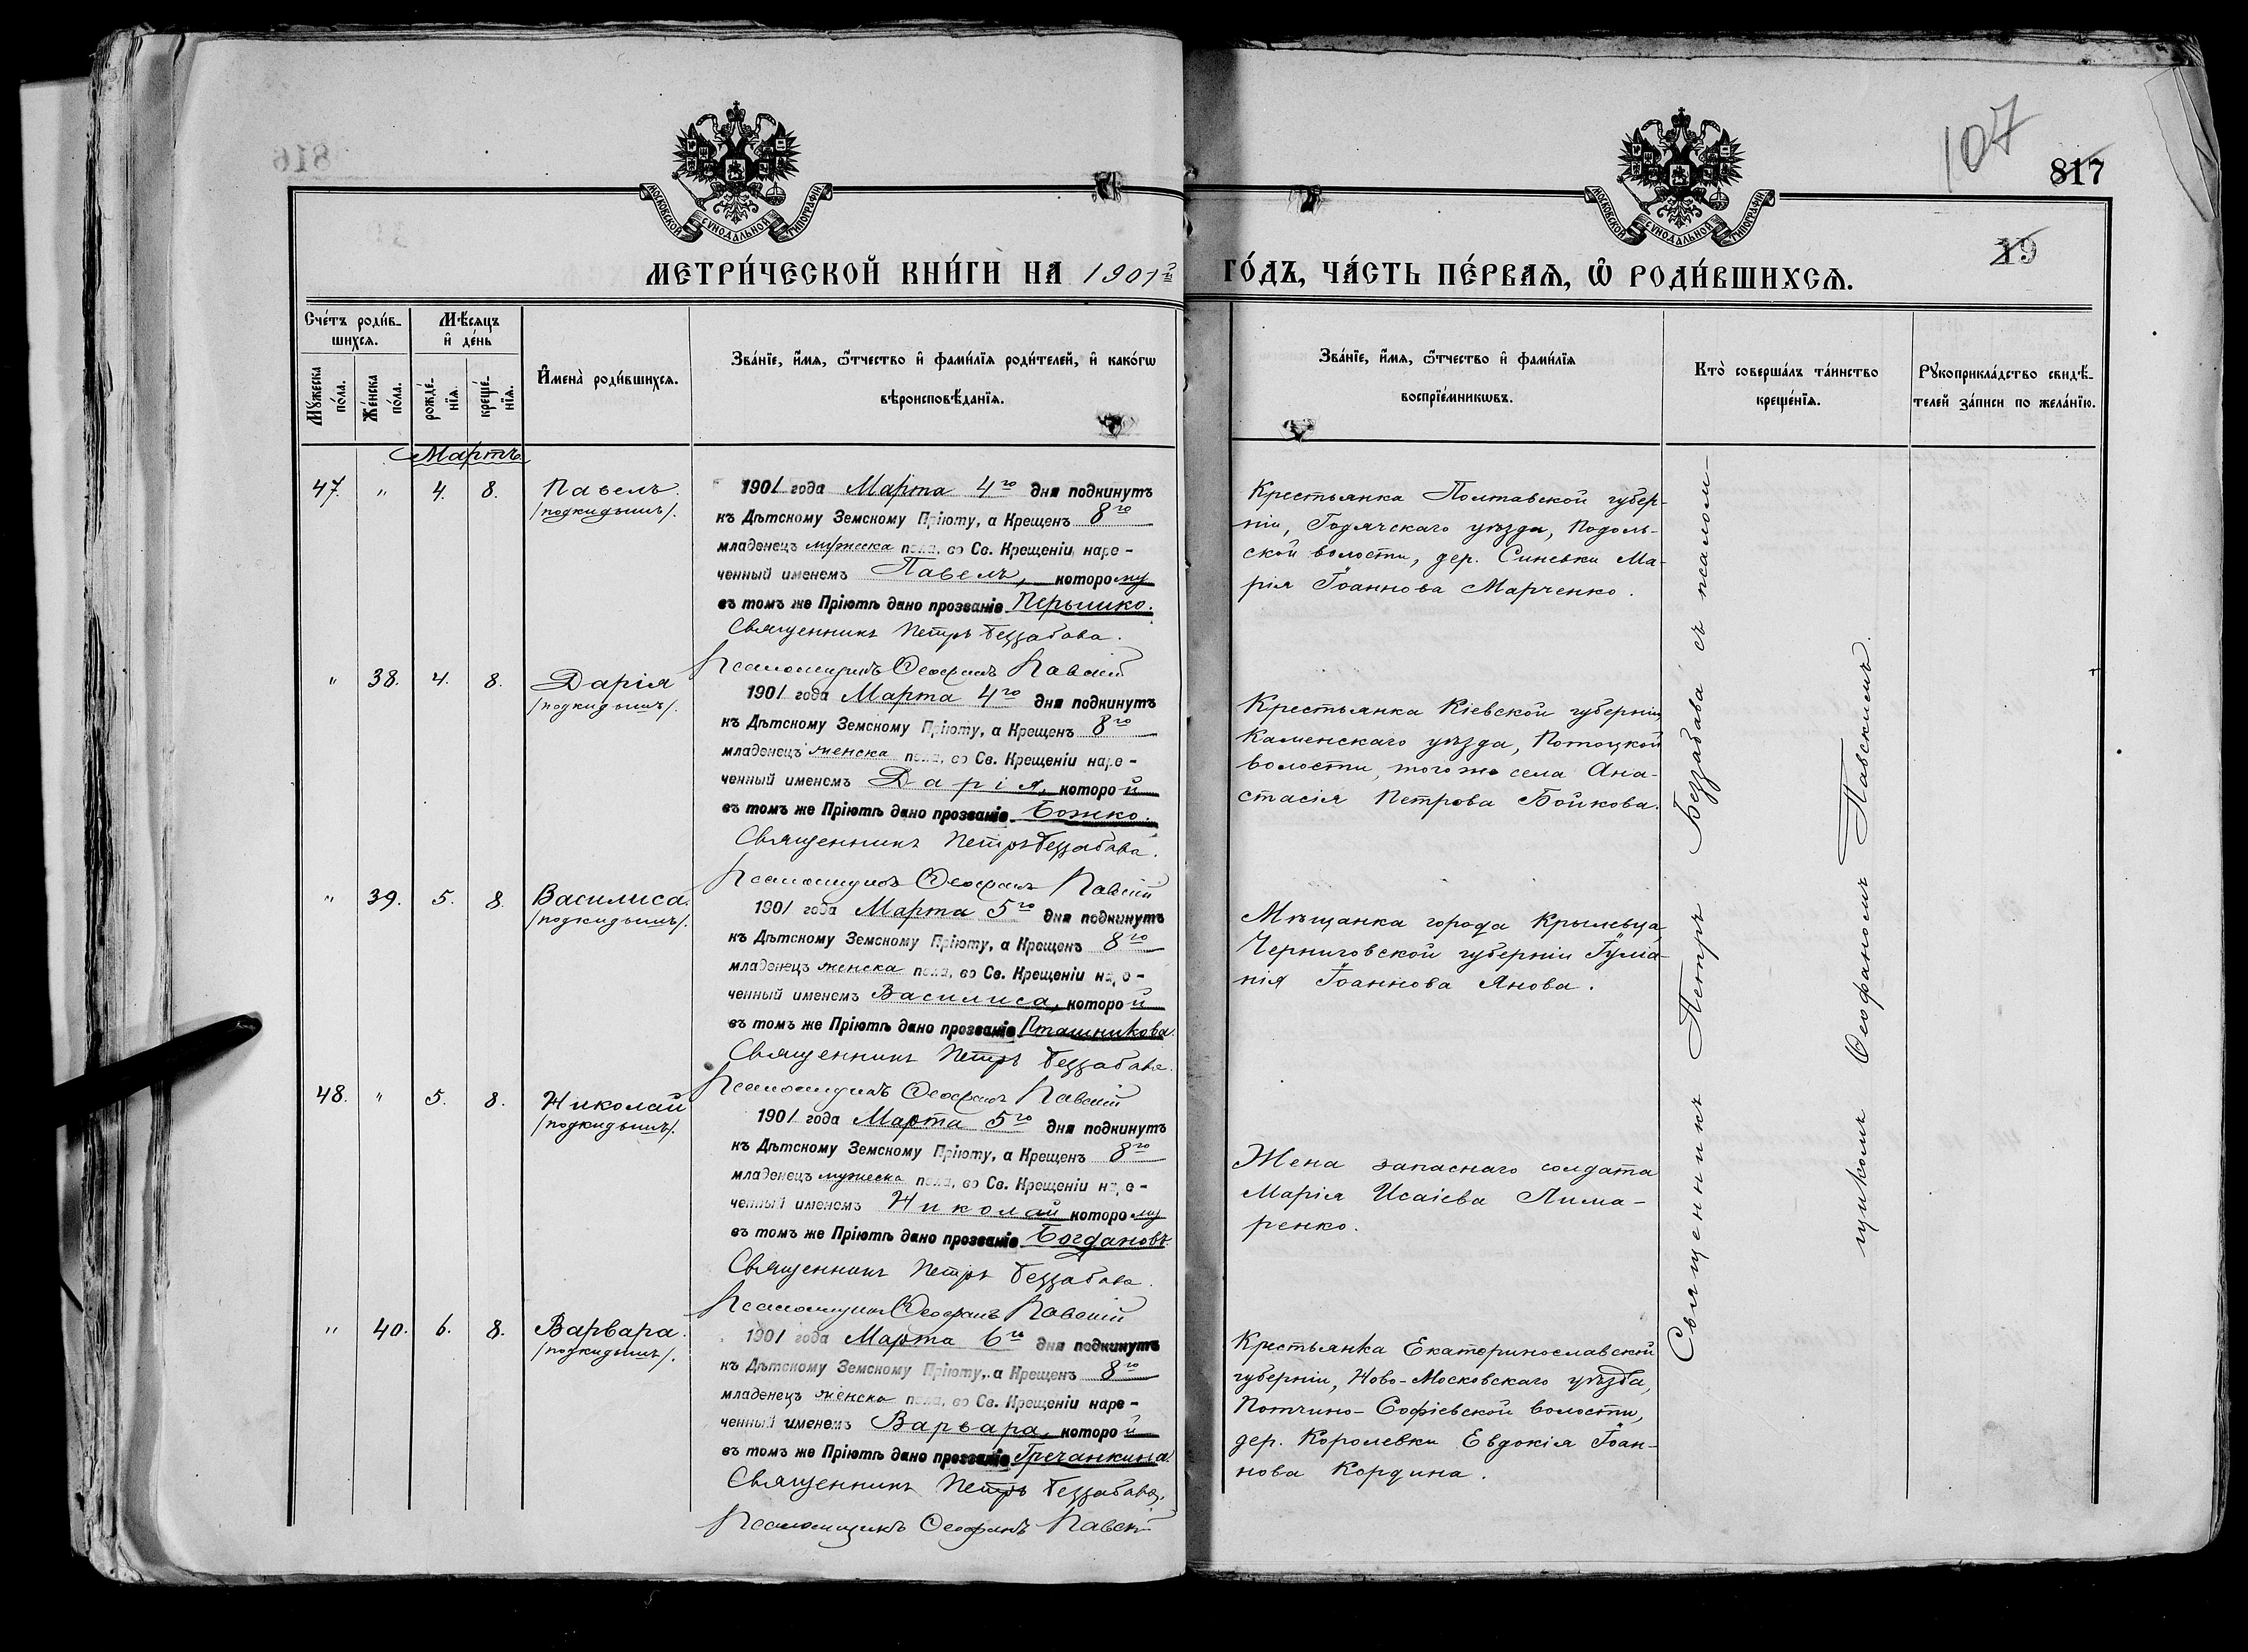 816
107
817
19
МОСКОВСКОЙ СѴНОДАЛЬНОЙ ТИПОГРАФІИ
МОСКОВСКОЙ СѴНОДАЛЬНОЙ ТИПОГРАФІИ
МЕТРИ́ЧЕСКОЙ КНИ́ГИ НА 1901й ГО́ДЪ, ЧА́СТЬ ПЕ́РВАѦ, Ѡ҆ РОДИ́ВШИХСѦ.
Сче́тъ роди́в-
шихсѧ.
Мꙋ́жеска
по́ла.
Же́нска
по́ла.
Мѣ́сѧцъ
и҆ де́нь
рожде́-
нїѧ.
креще́-
нїѧ.
И҆мена̀ роди́вшихсѧ.
Зва́нїе, и҆́мѧ, ѻ҆́тчество и҆ фами́лїѧ роди́телей, и҆ како́гѡ
вѣроисповѣ́данїѧ.
Зва́нїе, и҆́мѧ, ѻ҆́тчество и҆ фами́лїѧ
воспрїе́мникѡвъ.
Кто̀ соверша́лъ та́инство
креще́нїѧ.
Рꙋкоприкла́дство свидѣ́-
телей за́писи по жела́нїю.
Мартъ
47. " 4. 8. Павелъ.
/подкидышъ/.
1901 года Марта 4го дня подкинутъ
къ Дѣтскому Земскому Пріюту, а Крещенъ 8го
младенецъ мужеска пола, во Св. Крещеніи наре-
ченный именемъ Павелъ, которому
въ томъ же Пріютѣ дано прозваніе Перышко.
Священникъ Петръ Беззабава.
Псаломщикъ Ѳеофанъ Павскій
Крестьянка Полтавской губер-
ніи, Гадячскаго уѣзда, Подоль-
ской волости, дер. Синевки Ма-
рія Іоаннова Марченко.
" 38. 4. 8. Дарія
/подкидышъ/.
1901 года Марта 4го дня подкинутъ
къ Дѣтскому Земскому Пріюту, а Крещенъ 8го
младенецъ женска пола, во Св. Крещеніи наре-
ченный именемъ Дарія, которой
въ томъ же Пріютѣ дано прозваніе Божко.
Священникъ Петръ Беззабава.
Псаломщикъ Ѳеофанъ Павскій
Крестьянка Кіевской губерніи
Каменскаго уѣзда, Потоцкой
волости, того же села Ана-
стасія Петрова Бойкова.
" 39. 5. 8. Василиса.
/подкидышъ/.
1901 года Марта 5го дня подкинутъ
къ Дѣтскому Земскому Пріюту, а Крещенъ 8го
младенецъ женска пола, во Св. Крещеніи наре-
ченный именемъ Василиса, которой
въ томъ же Пріютѣ дано прозваніе Пташникова.
Священникъ Петръ Беззабава.
Псаломщикъ Ѳеофанъ Павскій
Мѣщанка города
Черниговской губерніи Іуліа-
нія Іоаннова Янова.
48. " 5. 8. Николай
/подкидышъ/.
1901 года Марта 5го дня подкинутъ
къ Дѣтскому Земскому Пріюту, а Крещенъ 8го
младенецъ мужеска пола, во Св. Крещеніи наре-
ченный именемъ Николай которому
въ томъ же Пріютѣ дано прозваніе Богдановъ.
Священникъ Петръ Беззабава.
Псаломщикъ Ѳеофанъ Павскій
Жена запаснаго солдата
Марія Исаіева Лима-
ренко.
" 40. 6. 8. Варвара.
/подкидышъ/.
1901 года Марта 6го дня подкинутъ
къ Дѣтскому Земскому Пріюту, а Крещенъ 8го
младенецъ женска пола, во Св. Крещеніи наре-
ченный именемъ Варвара, которой
въ томъ же Пріютѣ дано прозваніе Гречанкина.
Священникъ Петръ Беззабава.
Псаломщикъ Ѳеофанъ Павскій
Крестьянка Екатеринославской
губерніи, Ново-Московскаго уѣзда,
Софіевской волости,
дер. Королевки Евдокія Іоан-
нова Кордина.
Священникъ Петръ Беззабава съ псалом-
щикомъ Ѳеофаномъ Павскимъ.